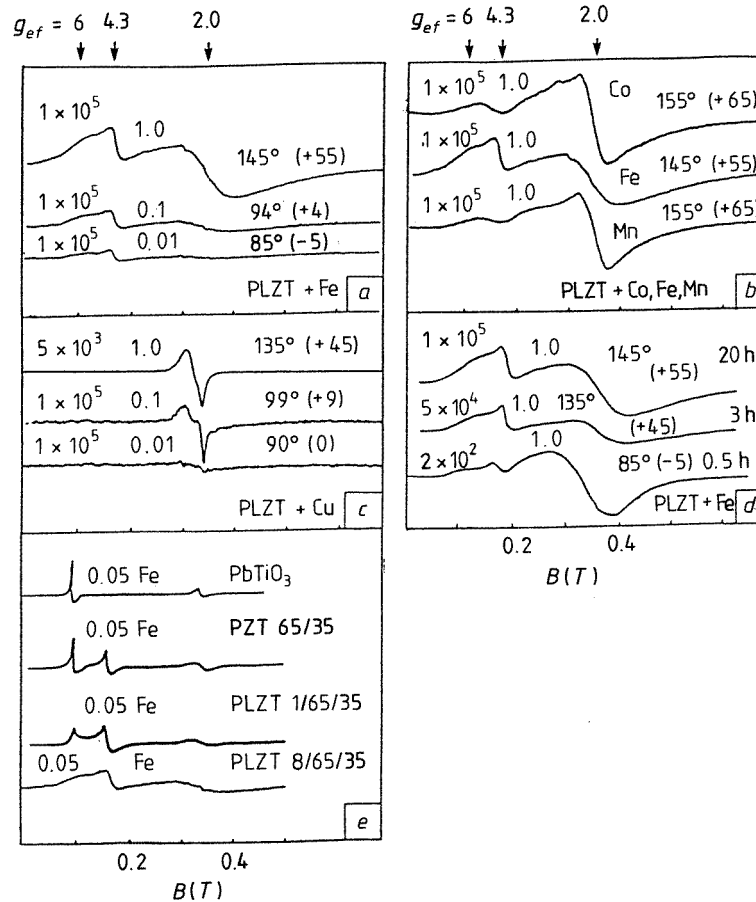 g_ef = 6 4.3 2.0
1 × 10⁵ 1.0 145° (+55)
1 × 10⁵ 0.1 94° (+4)
1 × 10⁵ 0.01 85° (−5)
PLZT + Fe a
5 × 10³ 1.0 135° (+45)
1 × 10⁵ 0.1 99° (+9)
1 × 10⁵ 0.01 90° (0)
PLZT + Cu c
0.05 Fe PbTiO₃
0.05 Fe PZT 65/35
0.05 Fe PLZT 1/65/35
0.05 Fe PLZT 8/65/35
e
0.2 0.4
B(T)
g_ef = 6 4.3 2.0
1 × 10⁵ 1.0 Co 155° (+65)
1 × 10⁵ 1.0 Fe 145° (+55)
1 × 10⁵ 1.0 Mn 155° (+65)
PLZT + Co, Fe, Mn b
1 × 10⁵ 1.0 145° (+55) 20 h
5 × 10⁴ 1.0 135° (+45) 3 h
2 × 10² 1.0 85° (−5) 0.5 h
PLZT + Fe d
0.2 0.4
B(T)